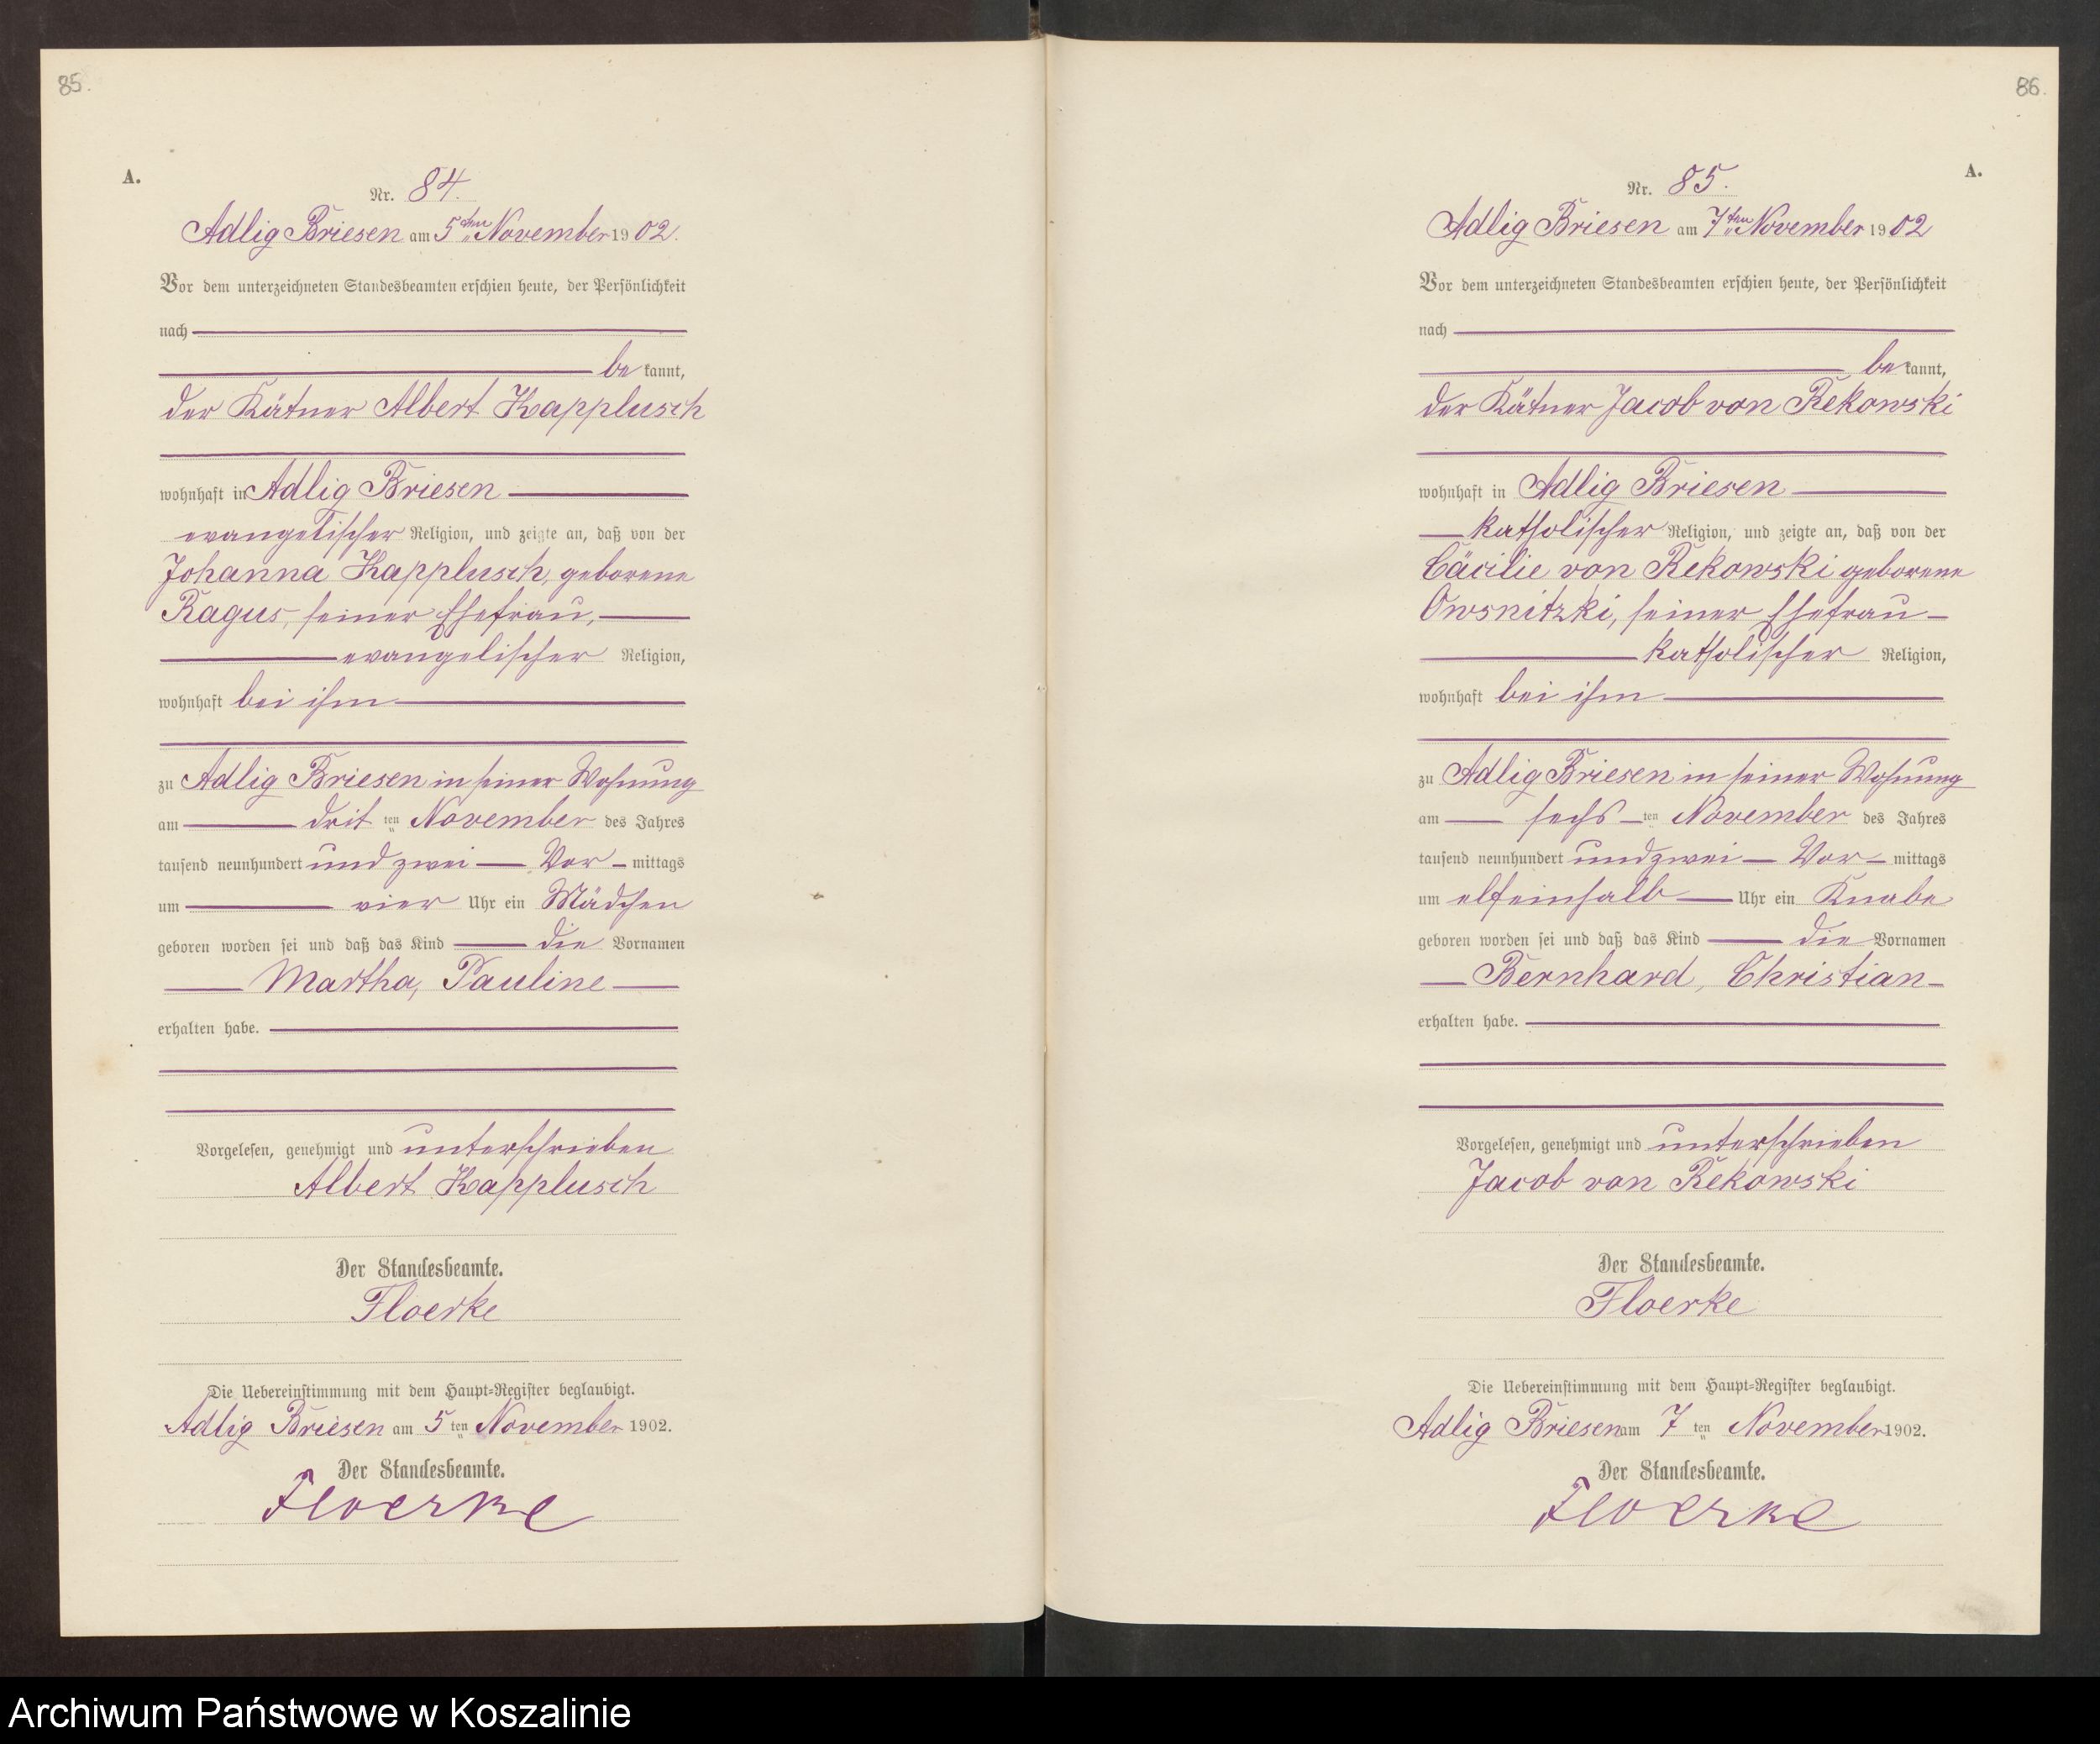 85.
A.
Nr. 84.
Adlig Briesen am 5ten November 1902.
Vor dem unterzeichneten Standesbeamten erschien heute, der Persönlichkeit
nach
bekannt,
der Kätner Albert Kapplusch
wohnhaft in Adlig Briesen
evangelischer Religion, und zeigte an, daß von der
Johanna Kapplusch, geborene
Ragus, seiner Ehefrau,
evangelischer Religion,
wohnhaft bei ihm
zu Adlig Briesen in seiner Wohnung
am dritten November des Jahres
tausend neunhundert und zwei Vormittags
um vier Uhr ein Mädchen
geboren worden sei und daß das Kind die Vornamen
Martha, Pauline
erhalten habe.
Vorgelesen, genehmigt und unterschrieben
Albert Kapplusch
Der Standesbeamte.
Floerke
Die Uebereinstimmung mit dem Haupt-Register beglaubigt.
Adlig Briesen am 5ten November 1902.
Der Standesbeamte.
Floerke
86.
A.
Nr. 85.
Adlig Briesen am 7ten November 1902
Vor dem unterzeichneten Standesbeamten erschien heute, der Persönlichkeit
nach
bekannt,
der Kätner Jacob von Rekowski
wohnhaft in Adlig Briesen
katholischer Religion, und zeigte an, daß von der
Cäcilie von Rekowski geborene
Owsnitzki, seiner Ehefrau
katholischer Religion,
wohnhaft bei ihm
zu Adlig Briesen in seiner Wohnung
am sechsten November des Jahres
tausend neunhundert und zwei Vormittags
um elfeinhalb Uhr ein Knabe
geboren worden sei und daß das Kind die Vornamen
Bernhard, Christian
erhalten habe.
Vorgelesen, genehmigt und unterschrieben
Jacob von Rekowski
Der Standesbeamte.
Floerke
Die Uebereinstimmung mit dem Haupt-Register beglaubigt.
Adlig Briesen am 7ten November 1902.
Der Standesbeamte.
Floerke
Archiwum Państwowe w Koszalinie